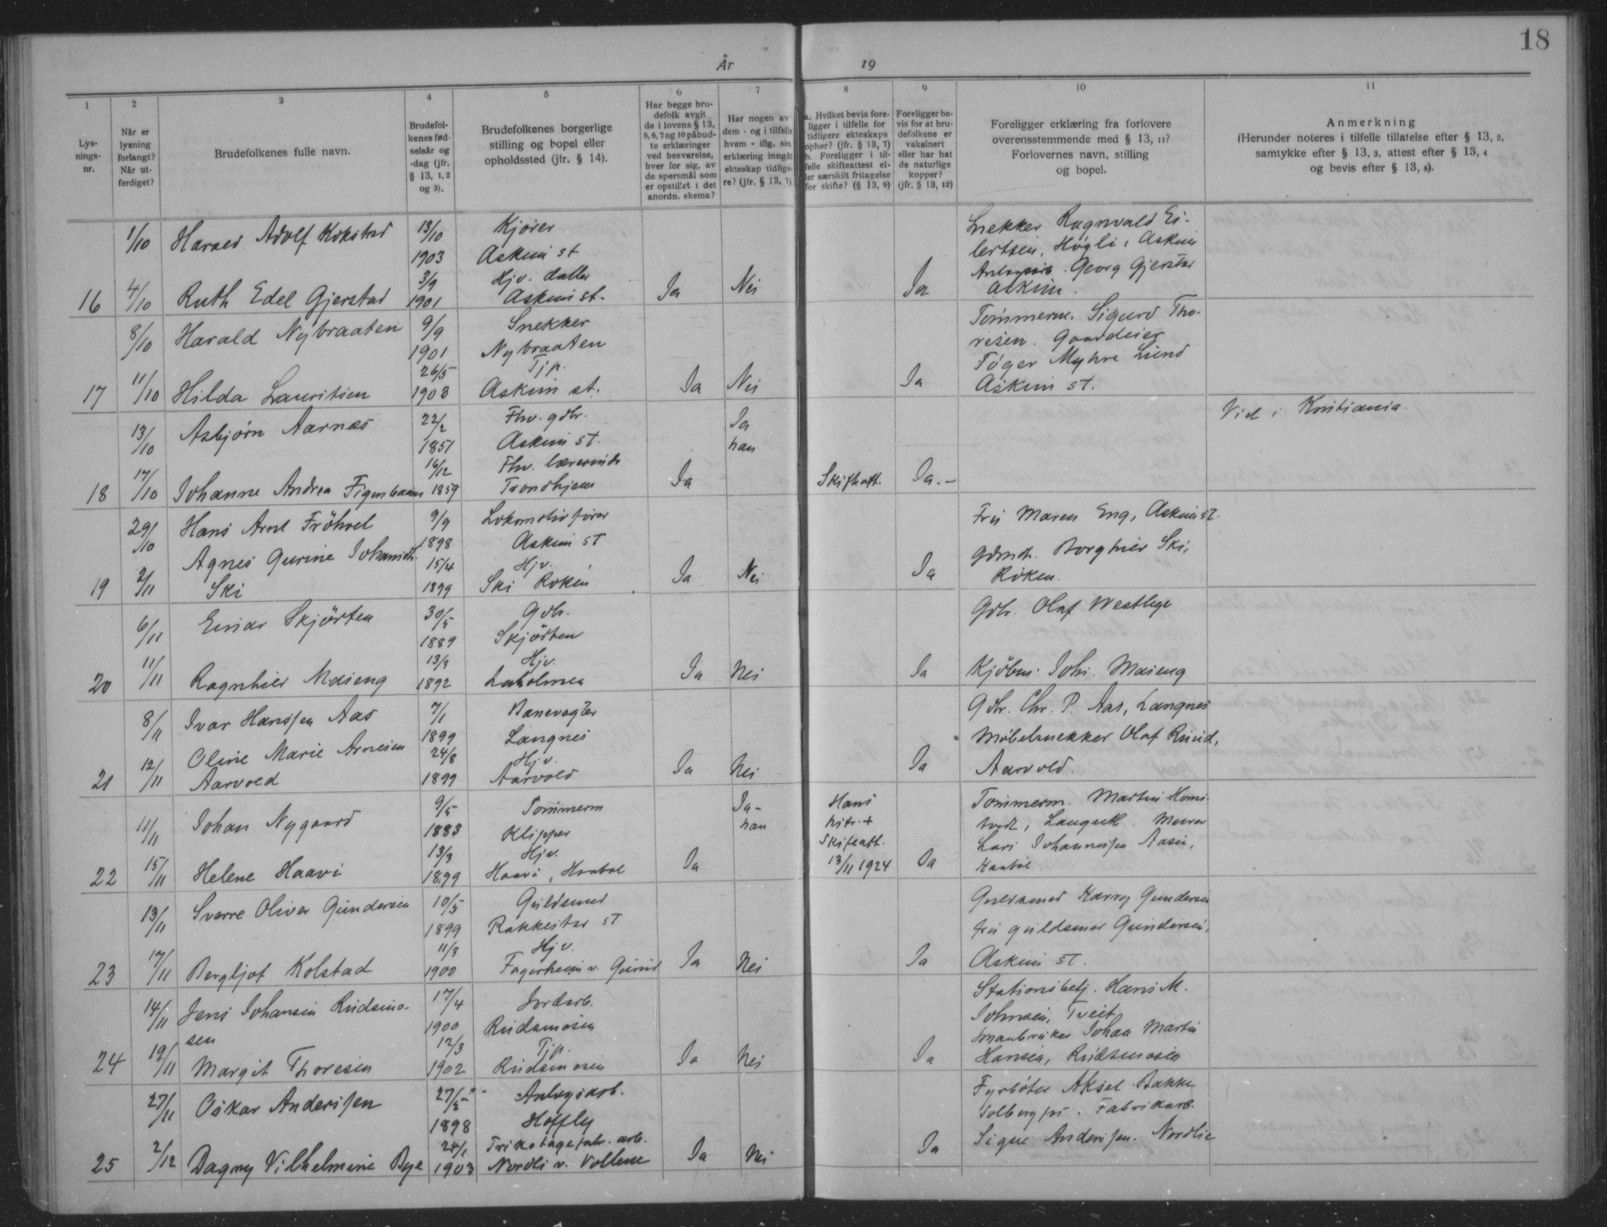 18
År 19
1 2 3 4 5 6 7 8 9 10 11
Lys-
nings-
nr.
Når er
lysning
forlangt?
Når ut-
ferdiget?
Brudefolkenes fulle navn.
Brudefol-
kenes fød-
selsår og
-dag (jfr.
§ 13, 1, 2
og 3).
Brudefolkenes borgerlige
stilling og bopel eller
opholdssted (jfr. § 14).
Har begge bru-
defolk avgit
de i lovens § 13,
5, 6, 7 og 10 påbud-
te erklæringer
ved besvarelse,
hver for sig, av
de spørsmål som
er opstillet i det
anordn. skema?
Har nogen av
dem - og i tilfelle
hvem - iflg. sin
erklæring inngått
ekteskap tidlige-
re? (jfr. § 13, 7)
a. Hvilket bevis fore-
ligger i tilfelle for
tidligere ekteskaps
ophør? (jfr. § 13, 7)
b. Foreligger i til-
felle skifteattest el-
ler særskilt fritagelse
for skifte? (§ 13, 9)
Foreligger be-
vis for at bru-
defolkene er
vaksinert
eller har hat
de naturlige
kopper?
(jfr. § 13, 12)
Foreligger erklæring fra forlovere
overensstemmende med § 13, 11?
Forlovernes navn, stilling
og bopel.
Anmerkning
(Herunder noteres i tilfelle tillatelse efter § 13, 2,
samtykke efter § 13, 3, attest efter § 13, 4
og bevis efter § 13, 8).
1/10 Adolf 13/10 Kjører Snekker Ragnvald Ei-
1903 Askim st lertsen, Høgli, Askim
3/9 Hjv. datter Georg Gjerstad
16 4/10 Ruth Edel Gjerstad 1901 Askim st. Ja Nei Ja Askim.
8/10 Harald Nybraaten 9/9 Snekker Tømmerm. Sigurd Tho-
1901 Nybraaten resen. Gaardeier
26/5 Tjp. Myhre Lund
17 11/10 Hilda Lauritsen 1903 Askim st. Ja Nei Ja Askim st.
13/10 Asbjørn Aarnæs 22/2 Fhv. gdbr. Ja Vid i Kristiania.
1851 Askim st. han
16/12 Fhv.
18 17/10 Johanne Andrea 1859 Trondhjem Ja Skifteatt. Ja.-
29/10 Hans Arnt Fröhvel 9/9 Lokomotivfører Fru Maren Eng, Askim st.
1898 Askim st
Agnes Gurine 15/4 Hjv. Ski,
19 2/11 Ski 1899 Ski Røken Ja Nei Ja Røken.
6/11 Einar Skjörten 30/5 Gdbr. Gdbr. Olaf Westlye
1889 Skjörten
13/9 Hjv.
20 11/11 Ragnhild Maseng 1892 Ja Nei Ja Kjöbm. Joh. Maseng
8/11 Ivar Hanssen Aas 7/1 Banevogter Gdbr. Chr. P. Aas, Langnes
1899 Langnes Möbelsnekker Olaf Ruud,
Oline Marie Arnesen 24/8 Hjv.
21 12/11 Aarvold 1899 Aarvold Ja Nei Ja Aarvold.
11/11 Johan Nygaard 9/5 Tømmerm Ja- Hans Tømmerm. Martin
1883 Klipper han hstr. +
13/3 Hjv. Skifteatt. Lars Johannessen Aasen,
22 15/11 Helene Haavi 1899 Haavi, Hobøl Ja 13/11 1924 Ja Hobøl
13/11 Sverre Oliver Gundersen 10/5 Guldsmed Guldsmed Harry Gundersen
1899 Rakkestad st fru guldsmed Gundersen,
11/3 Hjv.
23 17/11 Bergljot Kolstad 1900 Fagerheim v. Ja Nei Ja Askim st.
14/11 Jens Johansen Rudsmo- 17/4 Jordarb. Stationsbetj. Hans M.
sen 1900 Rudsmosen Johnsen, Tveit
12/3 Tjp. Smaabruker Johan Martin
24 19/11 Margit Thoresen 1902 Rudsmosen Ja Nei Ja Hansen, Rudsmosen
27/11 Oskar Anderssen 27/2 Anlegsarb. Fyrbøter Aksel Bakke
1898 Høffly Solbergfos. Fabrikarb.
24/1 Trikotagefabr. arb. Signe Anderssen. Nordlie
25 2/12 Dagny Vilhelmine Bye 1903 Nordli v. Vollene Ja Nei Ja